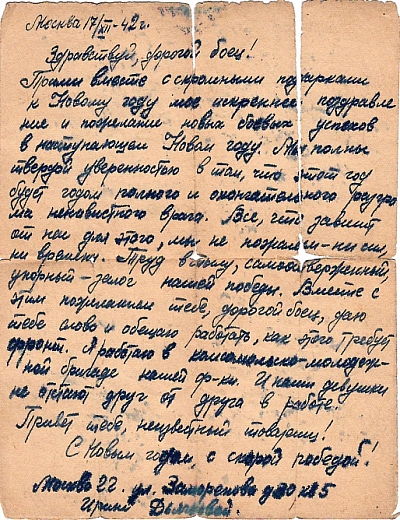 Москва 17/XII-42г.
Здравствуй, дорогой боец!
Прими вместе с скромными подарками
к Новому году мое искреннее поздравле
ние и пожелание новых боевых успехов
в наступающем Новом году. Мы полны
твердой уверенностью в том, что этот год
будет годом полного и окончательного разгро
ма ненавистного врага. Все, что зависит
от нас для этого, мы не пожалеем - ни сил,
ни времени. Труд в тылу, самоотверженный,
упорный - залог нашей победы. Вместе с
этим пожеланием тебе, дорогой боец, даю
тебе слово и обещаю работать, как этого требует
фронт. Я работаю в комсомольско-молодеж-
ной бригаде нашей ф-ки. И наши девушки
не отстают друг от друга в работе.
Привет тебе, неизвестный товарищ!
С Новым годом, с скорой победой!
Москва 22. ул. д 30 кв 5
Ирина